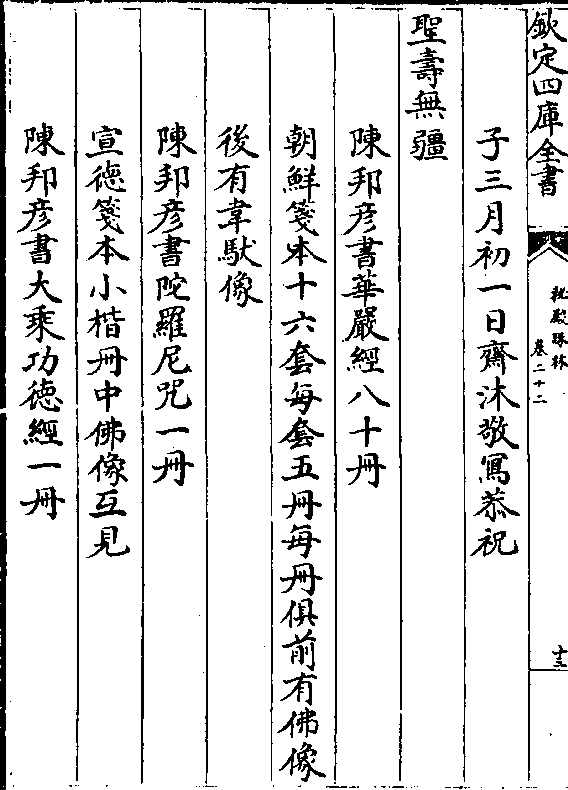 欽定四庫全書
秘殿珠林
卷二十二
十三
子三月初一日齋沐敬寫恭祝
聖壽無疆
陳邦彦書華嚴經八十冊
朝鮮箋本十六套每套五冊每冊俱前有佛像
後有韋馱像
陳邦彦書陀羅尼咒一冊
宣德箋本小楷冊中佛像互見
陳邦彦書大乘功德經一冊